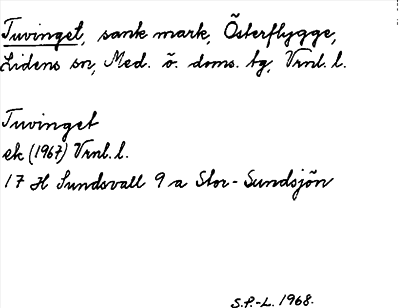 Tuvinget, sank mark, Österflygge,
Lidens sn, Med. ö. doms. tg, Vrnl. l.
Tuvinget
ek (1967) Vrnl. l.
17 H Sundsvall 9 a Stor-Sundsjön
S.P.-L. 1968.